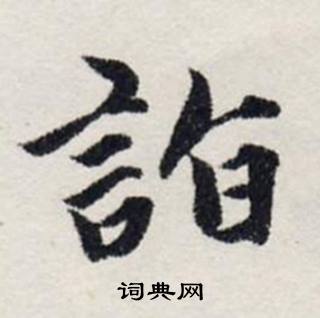 詣
词典网